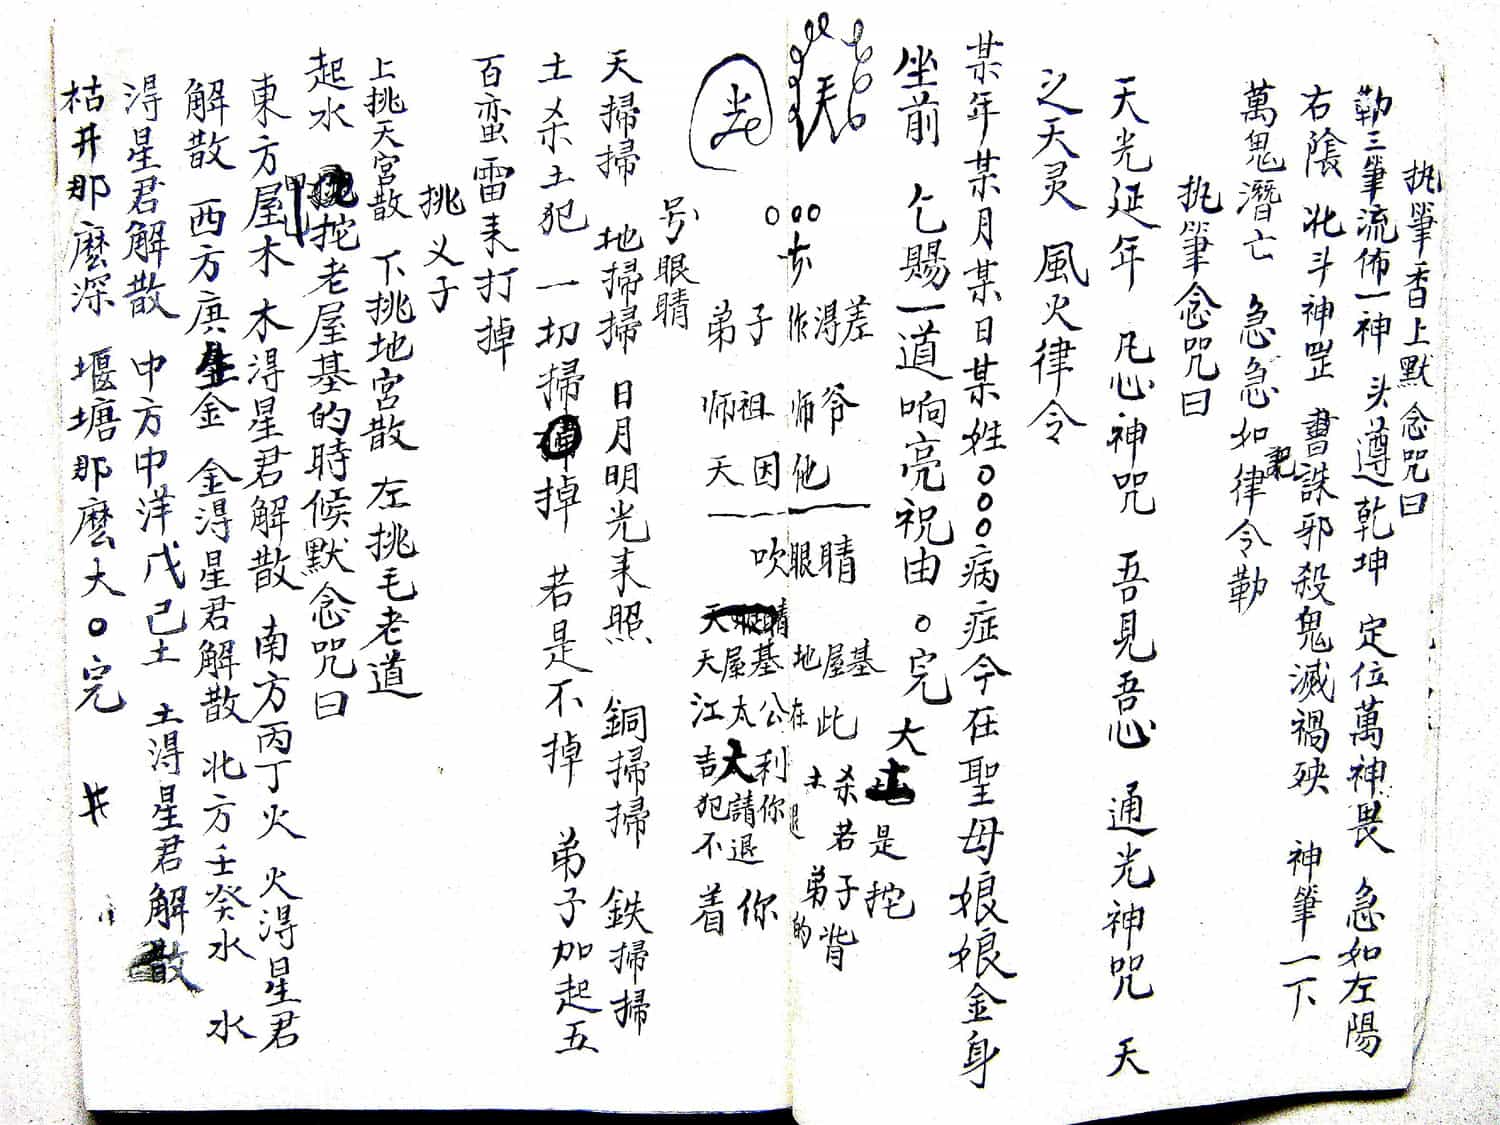 执筆香上默念咒曰
勒三筆流佈一神 头遵乾坤 定位萬神畏 急如左陽
右陰 北斗神罡 書誅邪殺鬼滅禍殃 神筆一下
萬鬼潛亡 急急如律令勒
执筆念咒曰
天光延年 凡心神咒 吾見吾心 通光神咒 天
之天灵 風火律令
某年某月某日某姓○○○病症今在聖母娘娘金身
坐前 乞賜一道响亮祝由 ○完
大 是挖
差 爷 晴 屋基 此 杀若 弟子背
作得 师他 眼 地 在 土 的
○○○
子 祖 因 吹
弟 师 天
天屋基
江太公
吉大利
犯請你
不退
着你
号眼睛
天掃掃 地掃掃 日月明光来照 銅掃掃 鉄掃掃
土杀土犯 一切掃掉 若是不掉 弟子加起五
百蛮雷来打掉
挑义子
上挑天宮散 下挑地宮散 左挑毛老道
起水 挖老屋基的時候默念咒曰
東方甲乙木 木得星君解散 南方丙丁火 火得星君
解散 西方庚金 金得星君解散 北方壬癸水 水
得星君解散 中方中洋戊己土 土得星君解散
枯井那麽深 堰塘那麽大○完 井